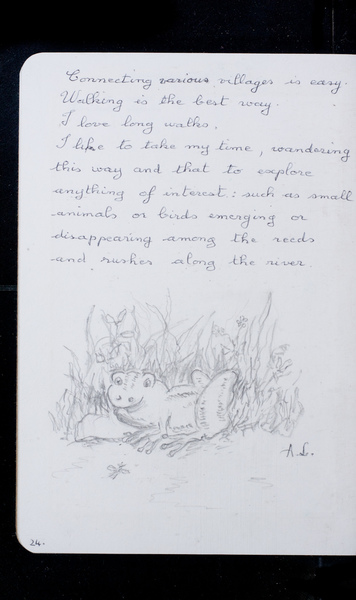 Connecting various villages is easy.
Walking is the best way.
I love long walks.
I like to take my time, wandering
this way and that to explore
anything of interest: such as small
animals or birds emerging or
disappearing among the reeds
and rushes along the river.
A.L.
24.